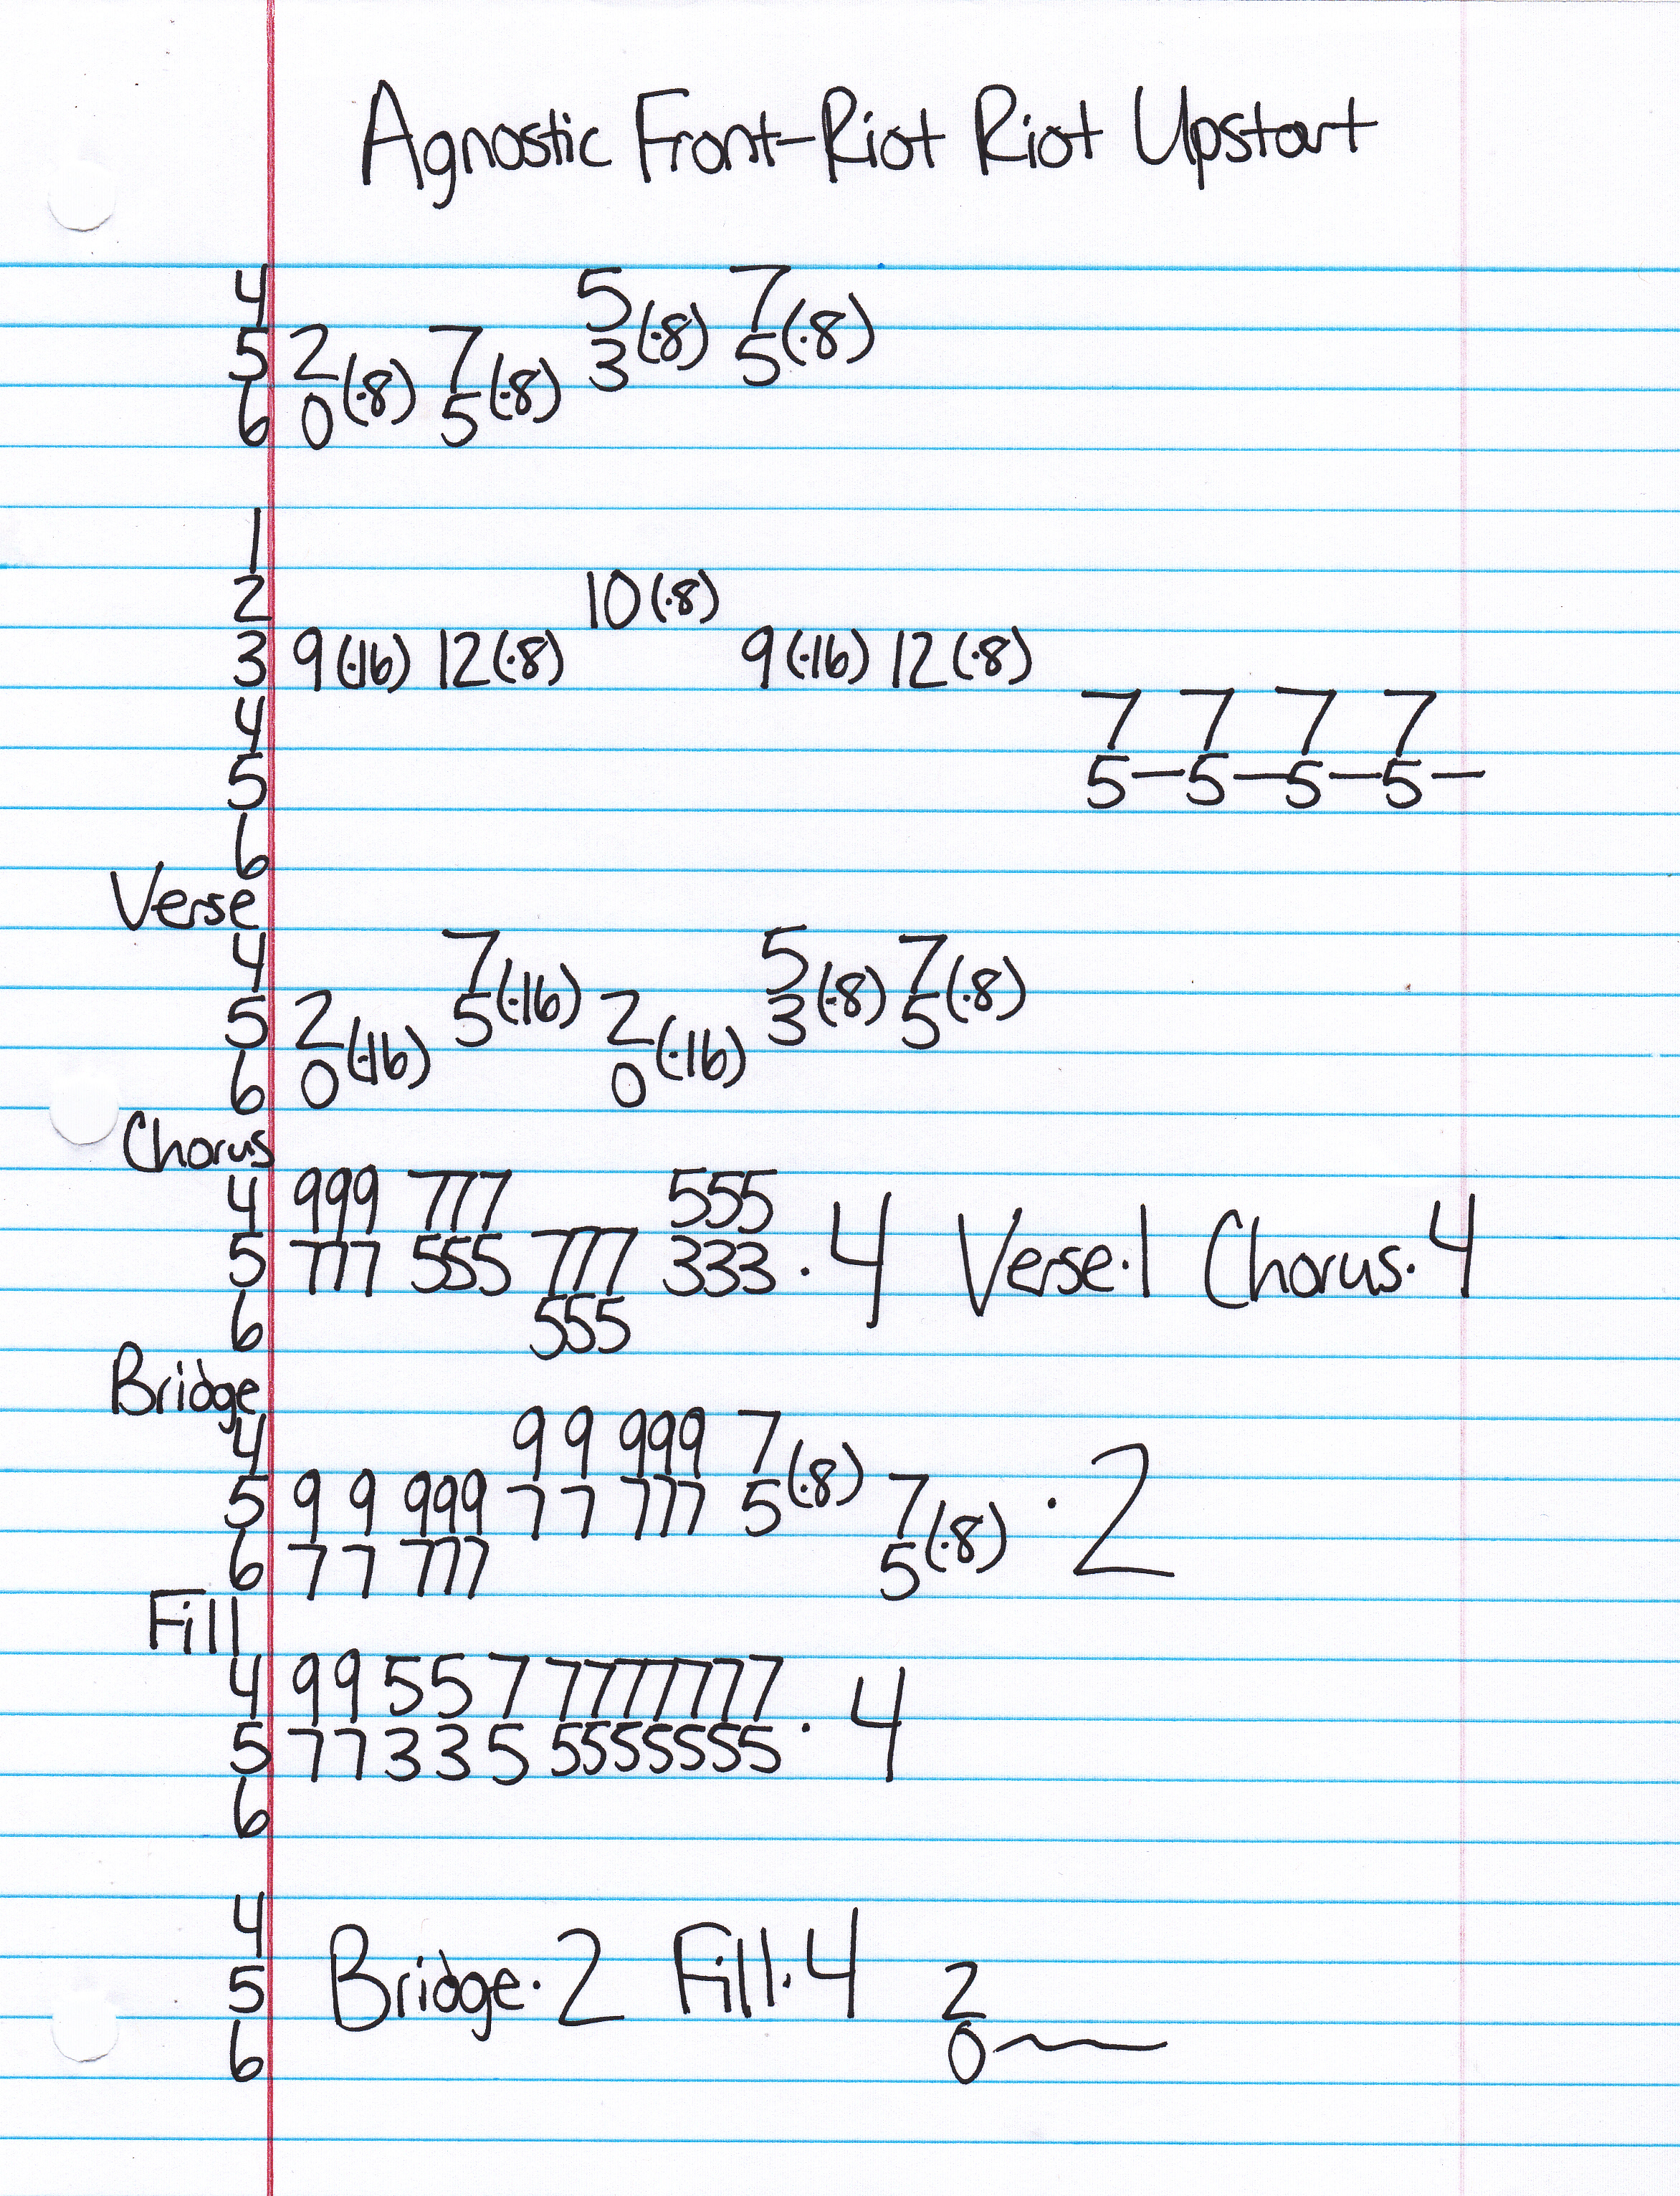 Agnostic Front-Riot Riot Upstart
4 5(·8) 7(·8)
5 2(·8) 7(·8) 3 5
6 0 5
1
2 10(·8)
3 9(·16) 12(·8) 9(·16) 12(·8)
4 7 7 7 7
5 5—5—5—5—
6
Verse
4 7(·16) 5(·8) 7(·8)
5 2(·16) 5 2(·16) 3 5
6 0 0
Chorus
4 999 777 555
5 777 555 777 333 · 4 Verse·1 Chorus·4
6 555
Bridge
4 9 9 999 7(·8)
5 9 9 999 7 7 777 5 7(·8) · 2
6 7 7 777 5
Fill
4 9 9 5 5 7 7777777 · 4
5 7 7 3 3 5 5555555
6
4
5 Bridge·2 Fill·4 2
6 0~